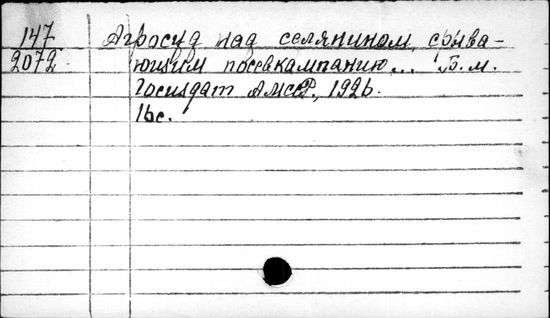 147 Агросуд над селянином, срыва-
2072 ющим посевкампанию... Б.м.
Госиздат АМССР, 1926.
16с.